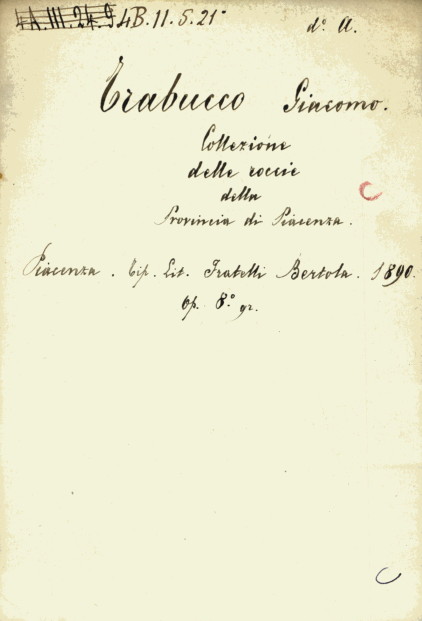 4A.III.24.9 4B.11.S.21·
d.° A.
Trabucco Giacomo.
Collezione
delle roccie
della
Provincia di Piacenza.
Piacenza. Tip. Lit. Fratelli Bertola. 1890.
Op. 8.° gr.